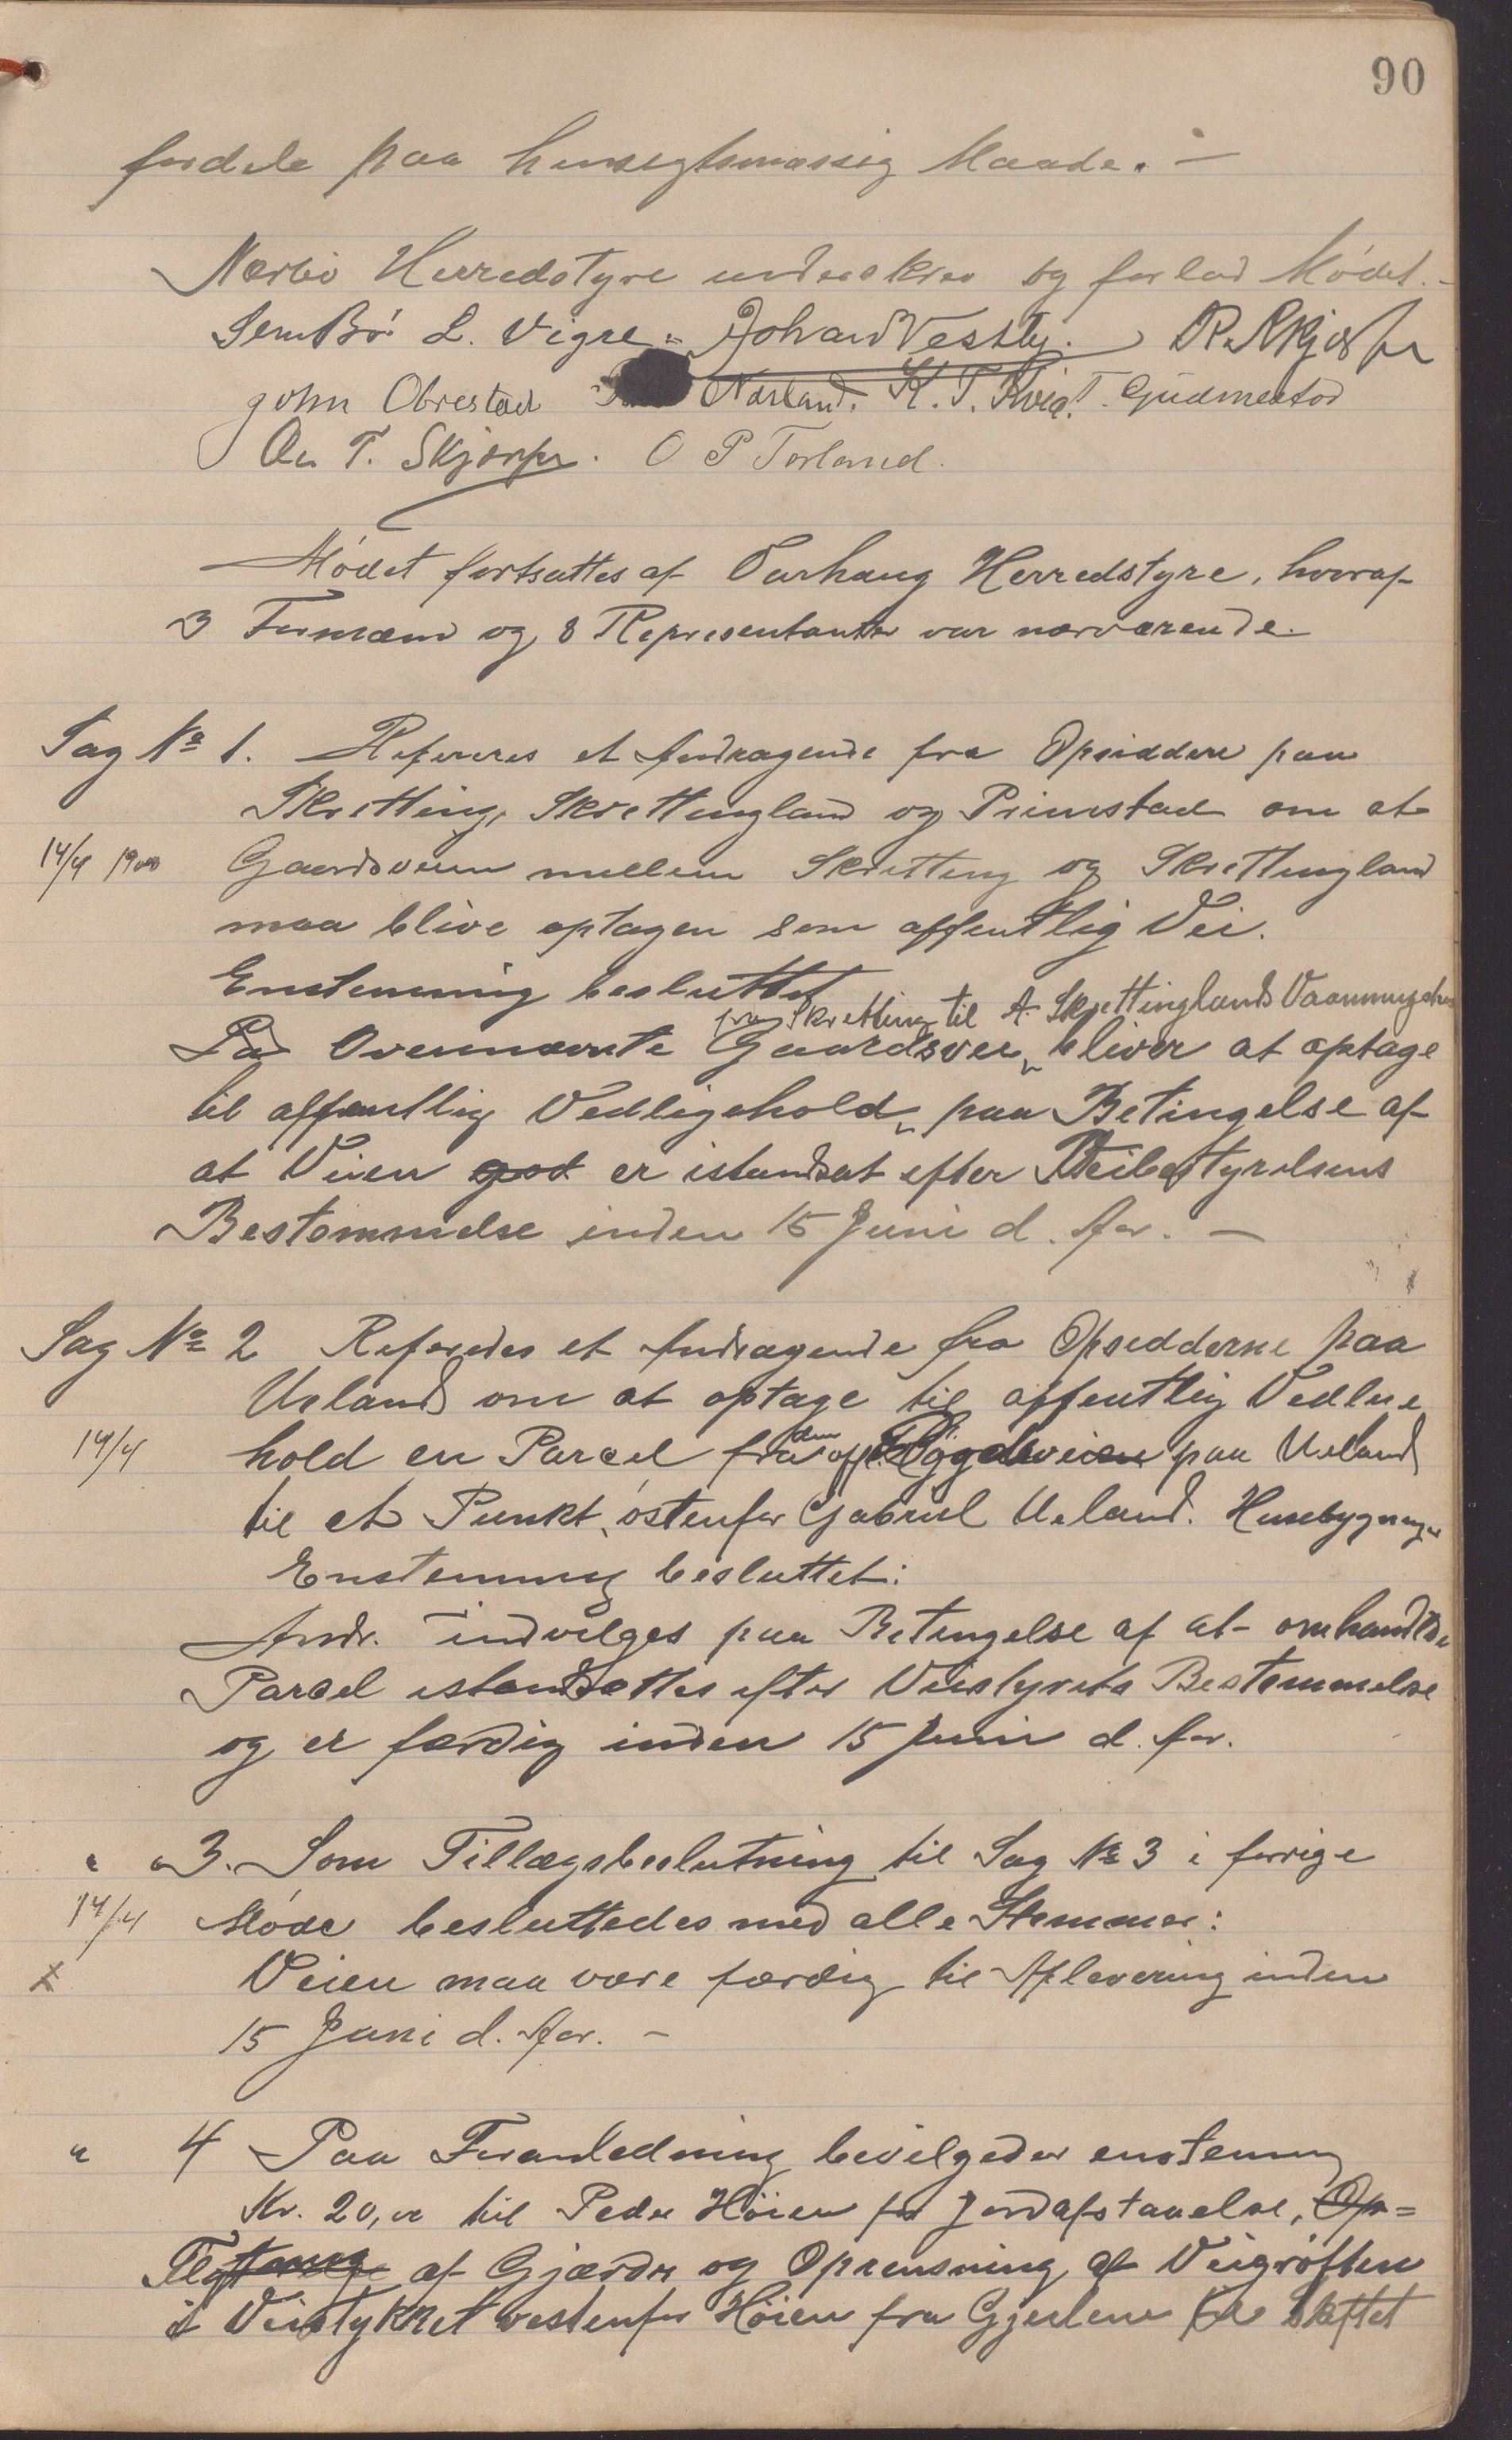 90
fordele paa hensigtsmæssig Maade. —
Nærbø Herredstyre underskrev og forlod Mødet. —
Sem Bø L. Vigre. Johan Vestly. R. Skjærpe
John Obrestad Nærland. K. T. Kvia. T. Gudmestad
T. Skjærpe. O P Torland.
Mødet fortsattes af Varhaug Herredstyre, hvoraf
3 Formænd og 8 Repræsentanter var nærværende.
Sag № 1. Refereres et Andragende fra Opsiddere paa
Skretting, Skrettingland og Primstad om at
14/4 1900 Gaardsveien mellem Skretting og Skrettingland
maa blive optagen som offentlig Vei.
Enstemmig besluttet
fra Skretting til A. Skrettinglands Vaaningshus
Ovennævnte Gaardsvei bliver at optage
til offentlig Vedligehold paa Betingelse af
at Veien god er istandsat efter Veibestyrelsens
Bestemmelse inden 15 Juni d. Aar. —
Sag № 2 Referedes et Andragende fra Opsidderne paa
Ueland om at optage til offentlig Vedlige
14/4 hold en Parcel fra den off. Bygdeveien paa Ueland
til et Punkt østenfor Gabriel Ueland. Husebygninger
Enstemmig besluttet:
Andr. indvilges paa Betingelse af at omhandlede
Parcel istandsættes efter Veistyrets Bestemmelse
og er færdig inden 15 Juni d. Aar.
" " 3. Som Tillægsbeslutning til Sag № 3 i forrige
14/4 Møde besluttedes med alle Stemmer:
x Veien maa være færdig til Aflevering inden
15 Juni d. Aar. —
" 4 Paa Foranledning bevilgedes enstemmig
Kr. 20,00 til Peder Höien for Jordafstaaelse, Op=
af Gjærder og Oprensning af Veigrøften
i Veistykket vestenfor Höien fra Gjeilene Skiftet